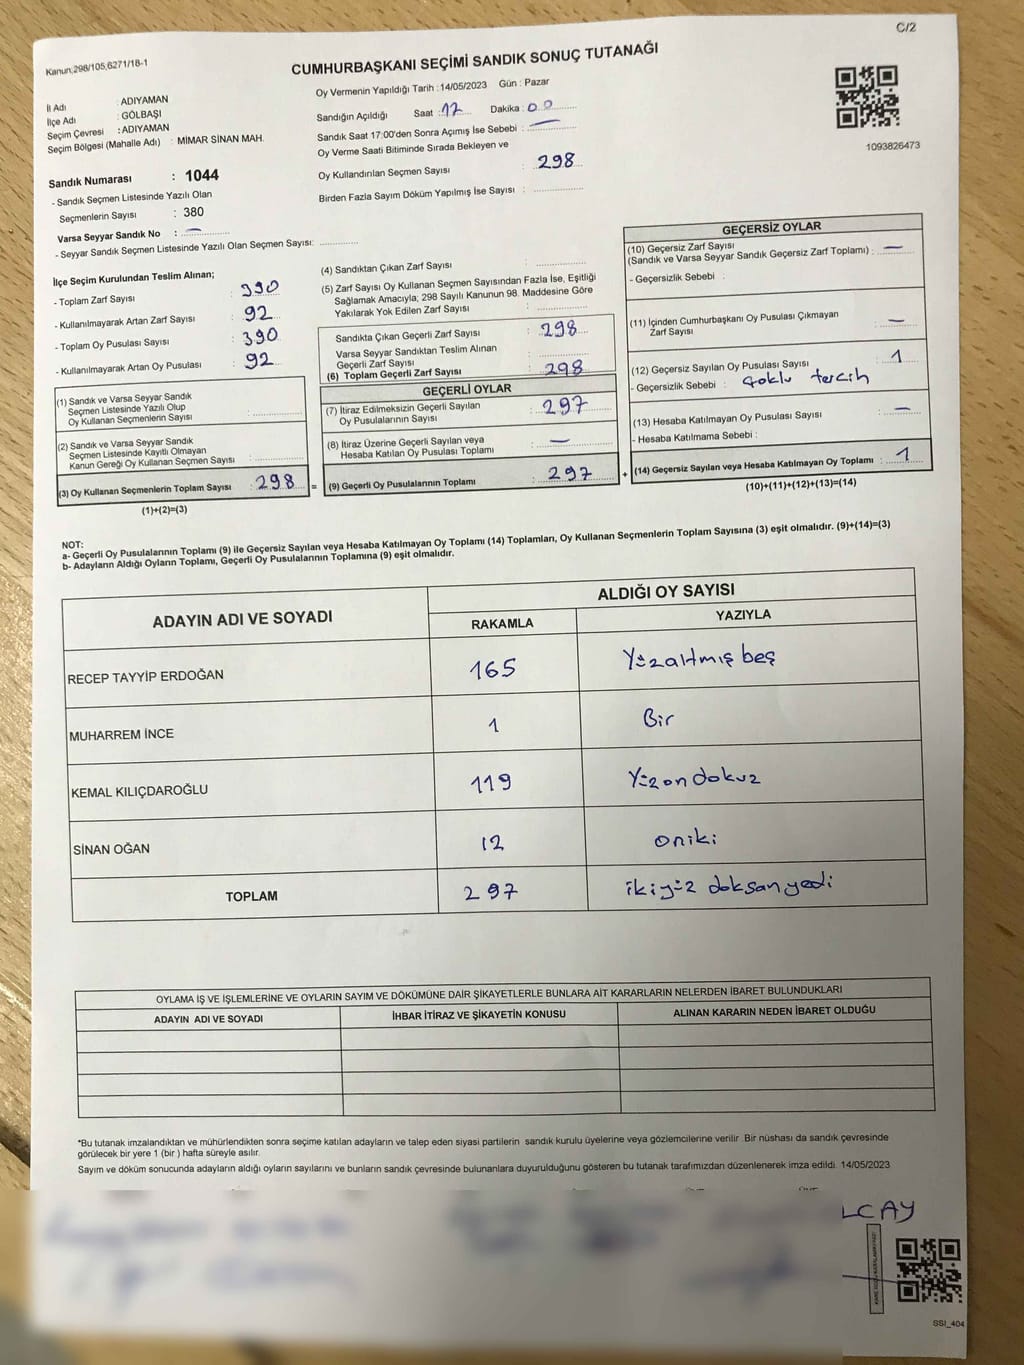 C/2
Kanun;298/105,6271/18-1
CUMHURBAŞKANI SEÇİMİ SANDIK SONUÇ TUTANAĞI
İl Adı : ADIYAMAN
İlçe Adı : GÖLBAŞI
Seçim Çevresi : ADIYAMAN
Seçim Bölgesi (Mahalle Adı) : MİMAR SİNAN MAH.
Sandık Numarası : 1044
- Sandık Seçmen Listesinde Yazılı Olan
Seçmenlerin Sayısı : 380
Varsa Seyyar Sandık No : —
- Seyyar Sandık Seçmen Listesinde Yazılı Olan Seçmen Sayısı:
Oy Vermenin Yapıldığı Tarih :14/05/2023 Gün : Pazar
Sandığın Açıldığı Saat : 17 Dakika : 00
Sandık Saat 17:00'den Sonra Açımış İse Sebebi : —
Oy Verme Saati Bitiminde Sırada Bekleyen ve
Oy Kullandırılan Seçmen Sayısı : 298
Birden Fazla Sayım Döküm Yapılmış İse Sayısı :
1093826473
İlçe Seçim Kurulundan Teslim Alınan;
- Toplam Zarf Sayısı : 390
- Kullanılmayarak Artan Zarf Sayısı : 92
- Toplam Oy Pusulası Sayısı : 390
- Kullanılmayarak Artan Oy Pusulası : 92
(1) Sandık ve Varsa Seyyar Sandık
Seçmen Listesinde Yazılı Olup
Oy Kullanan Seçmenlerin Sayısı :
(2) Sandık ve Varsa Seyyar Sandık
Seçmen Listesinde Kayıtlı Olmayan
Kanun Gereği Oy Kullanan Seçmen Sayısı :
(3) Oy Kullanan Seçmenlerin Toplam Sayısı : 298 =
(1)+(2)=(3)
(4) Sandıktan Çıkan Zarf Sayısı :
(5) Zarf Sayısı Oy Kullanan Seçmen Sayısından Fazla İse, Eşitliği
Sağlamak Amacıyla, 298 Sayılı Kanunun 98. Maddesine Göre
Yakılarak Yok Edilen Zarf Sayısı :
Sandıkta Çıkan Geçerli Zarf Sayısı : 298
Varsa Seyyar Sandıktan Teslim Alınan
Geçerli Zarf Sayısı :
(6) Toplam Geçerli Zarf Sayısı : 298
GEÇERLİ OYLAR
(7) İtiraz Edilmeksizin Geçerli Sayılan
Oy Pusulalarının Sayısı : 297
(8) İtiraz Üzerine Geçerli Sayılan veya
Hesaba Katılan Oy Pusulası Toplamı : —
(9) Geçerli Oy Pusulalarının Toplamı : 297 +
GEÇERSİZ OYLAR
(10) Geçersiz Zarf Sayısı
(Sandık ve Varsa Seyyar Sandık Geçersiz Zarf Toplamı) : —
- Geçersizlik Sebebi :
(11) İçinden Cumhurbaşkanı Oy Pusulası Çıkmayan
Zarf Sayısı : —
(12) Geçersiz Sayılan Oy Pusulası Sayısı : 1
- Geçersizlik Sebebi : Çoklu tercih
(13) Hesaba Katılmayan Oy Pusulası Sayısı : —
- Hesaba Katılmama Sebebi :
(14) Geçersiz Sayılan veya Hesaba Katılmayan Oy Toplamı : 1
(10)+(11)+(12)+(13)=(14)
NOT:
a- Geçerli Oy Pusulalarının Toplamı (9) ile Geçersiz Sayılan veya Hesaba Katılmayan Oy Toplamı (14) Toplamları, Oy Kullanan Seçmenlerin Toplam Sayısına (3) eşit olmalıdır. (9)+(14)=(3)
b- Adayların Aldığı Oyların Toplamı, Geçerli Oy Pusulalarının Toplamına (9) eşit olmalıdır.
ADAYIN ADI VE SOYADI ALDIĞI OY SAYISI
RAKAMLA YAZIYLA
RECEP TAYYİP ERDOĞAN 165 Yüzaltmış beş
MUHARREM İNCE 1 Bir
KEMAL KILIÇDAROĞLU 119 Yüzon dokuz
SİNAN OĞAN 12 oniki
TOPLAM 297 ikiyüz doksan yedi
OYLAMA İŞ VE İŞLEMLERİNE VE OYLARIN SAYIM VE DÖKÜMÜNE DAİR ŞİKAYETLERLE BUNLARA AİT KARARLARIN NELERDEN İBARET BULUNDUKLARI
ADAYIN ADI VE SOYADI İHBAR İTİRAZ VE ŞİKAYETİN KONUSU ALINAN KARARIN NEDEN İBARET OLDUĞU
*Bu tutanak imzalandıktan ve mühürlendikten sonra seçime katılan adayların ve talep eden siyasi partilerin sandık kurulu üyelerine veya gözlemcilerine verilir .Bir nüshası da sandık çevresinde
görülecek bir yere 1 (bir ) hafta süreyle asılır.
Sayım ve döküm sonucunda adayların aldığı oyların sayılarını ve bunların sandık çevresinde bulunanlara duyurulduğunu gösteren bu tutanak tarafımızdan düzenlenerek imza edildi. 14/05/2023
LCAY
SSI_404